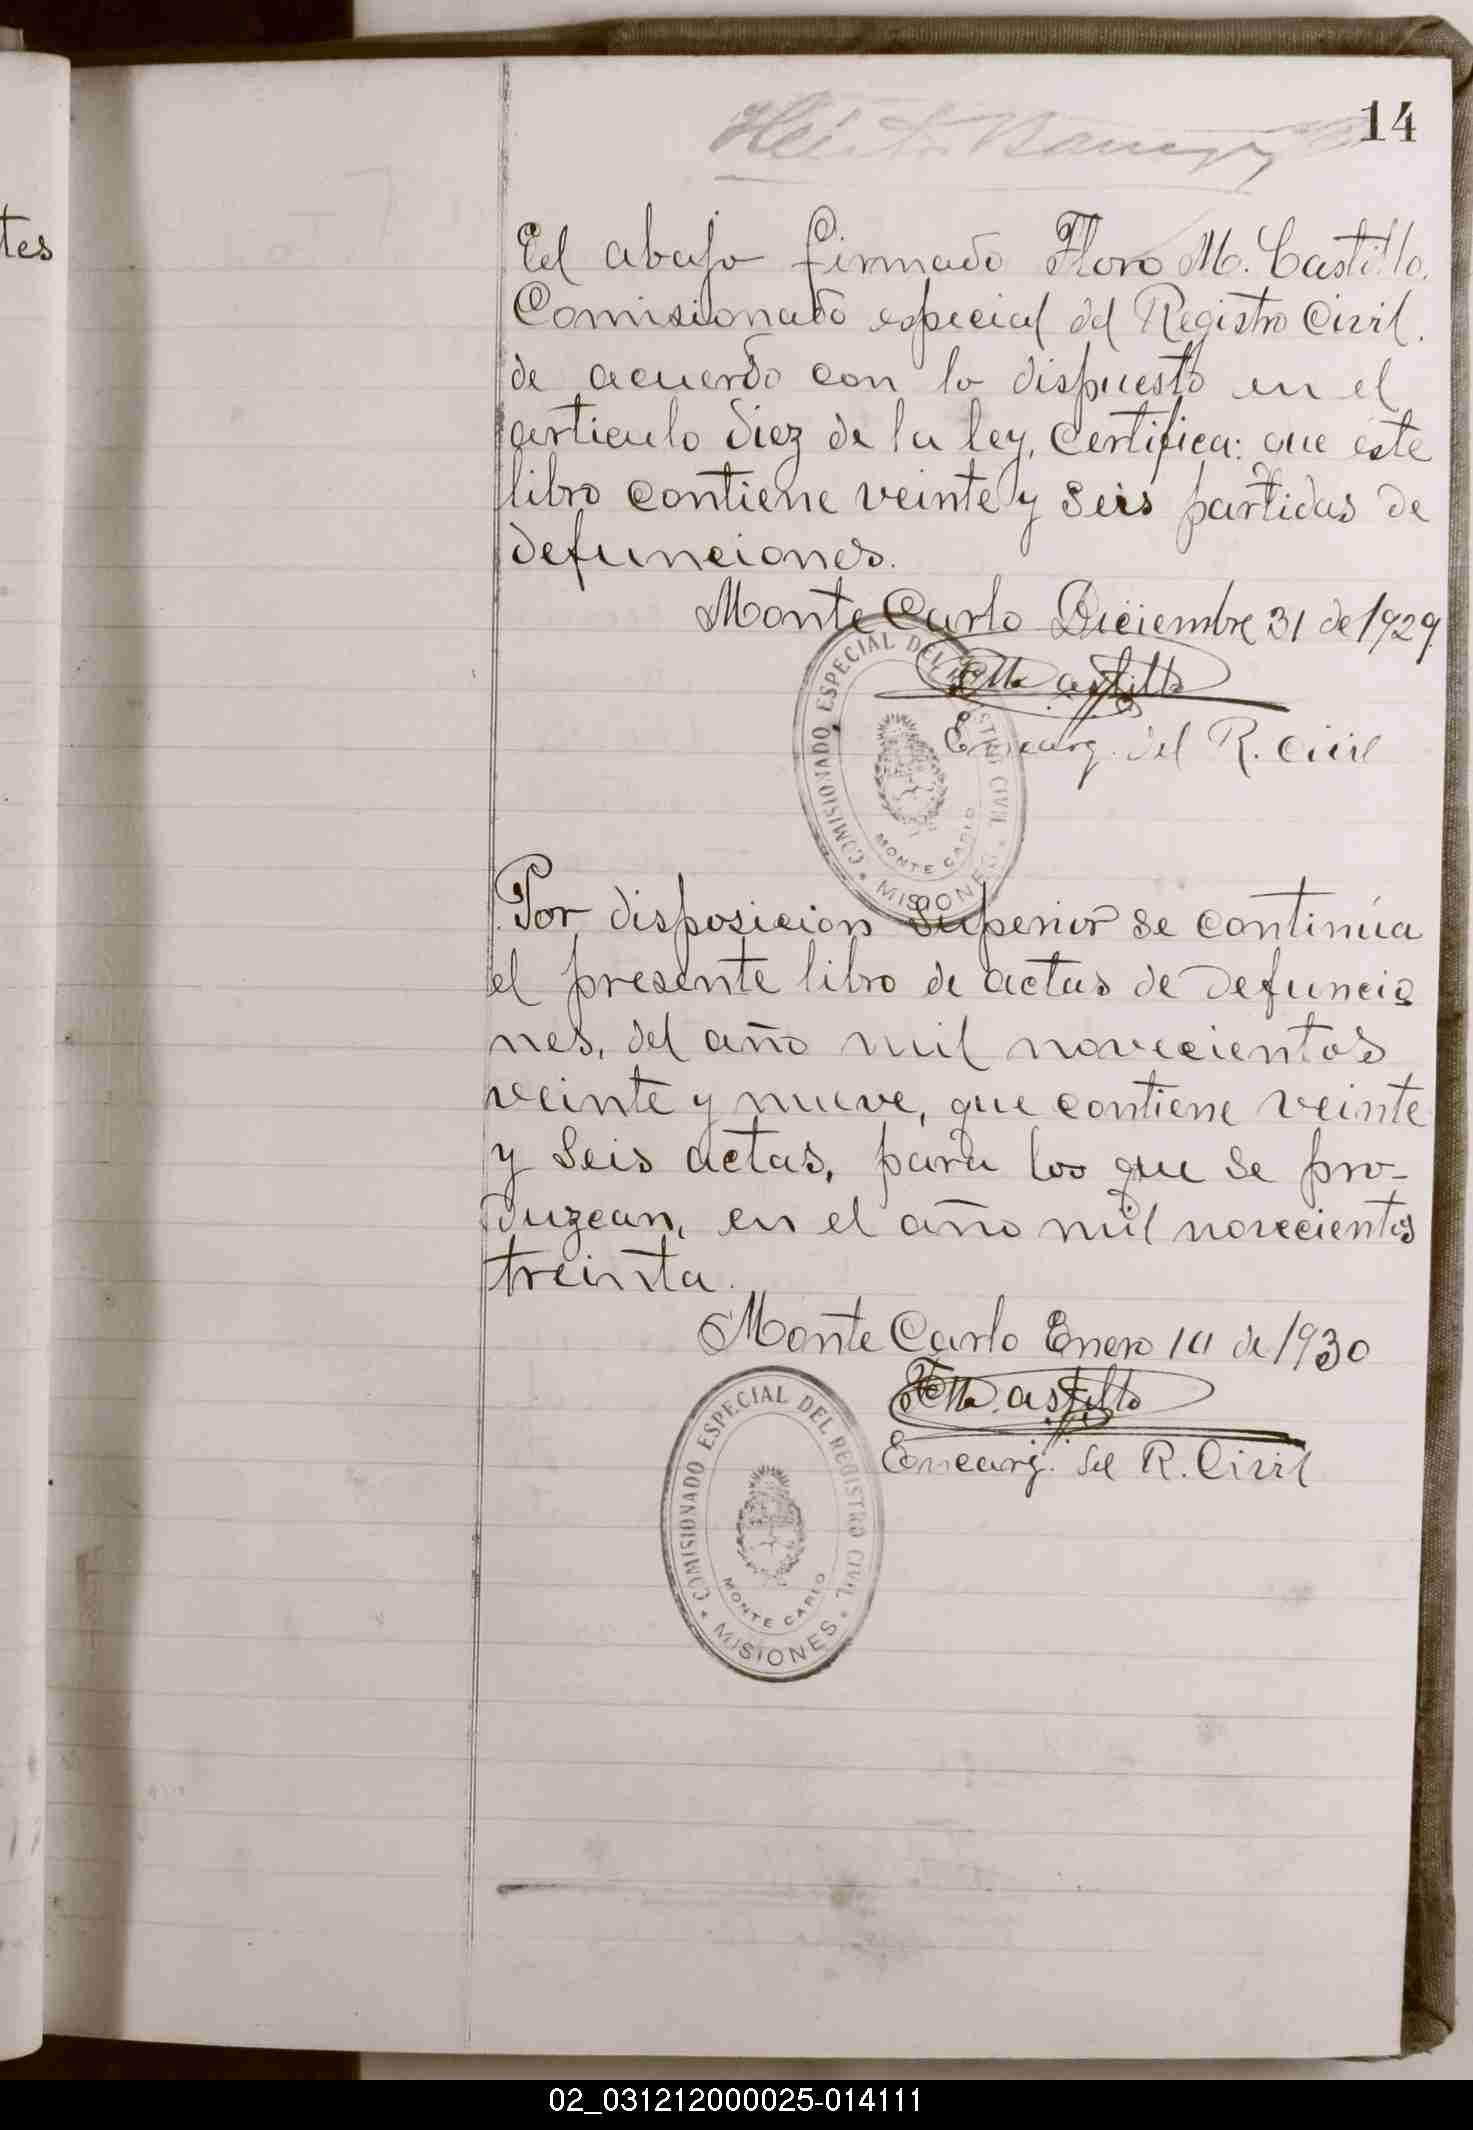 14
tes
El abajo firmado Floro M. Castillo.
Comisionado especial del Registro Civil.
de acuerdo con lo dispuesto en el
articulo diez de la ley, certifica: que este
libro contiene veinte y seis partidas de
defunciones.
Monte Carlo Diciembre 31 de 1929
Castillo
Encarg. del R. Civil
COMISIONADO ESPECIAL DEL REGISTRO CIVIL
MONTE CARLO
MISIONES
Por disposicion superior se continúa
el presente libro de actas de defuncio
nes, del año mil novecientos
veinte y nueve, que contiene veinte
y seis actas, para los que se pro-
duzcan, en el año mil novecientos
treinta.
Monte Carlo Enero de 1930
Castillo
Encarg. del R. Civil
COMISIONADO ESPECIAL DEL REGISTRO CIVIL
MONTE CARLO
MISIONES
02_031212000025-014111